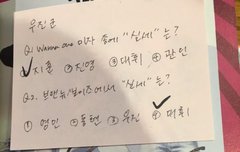 우진군
Q.1 Wanna one 이자 중에 "실세"는?
✓지훈 ②진영 ③대휘 ④관린
Q.2. 브랜뉴보이즈에서 "실세"는?
①영민 ②동현 ③우진 ④대휘